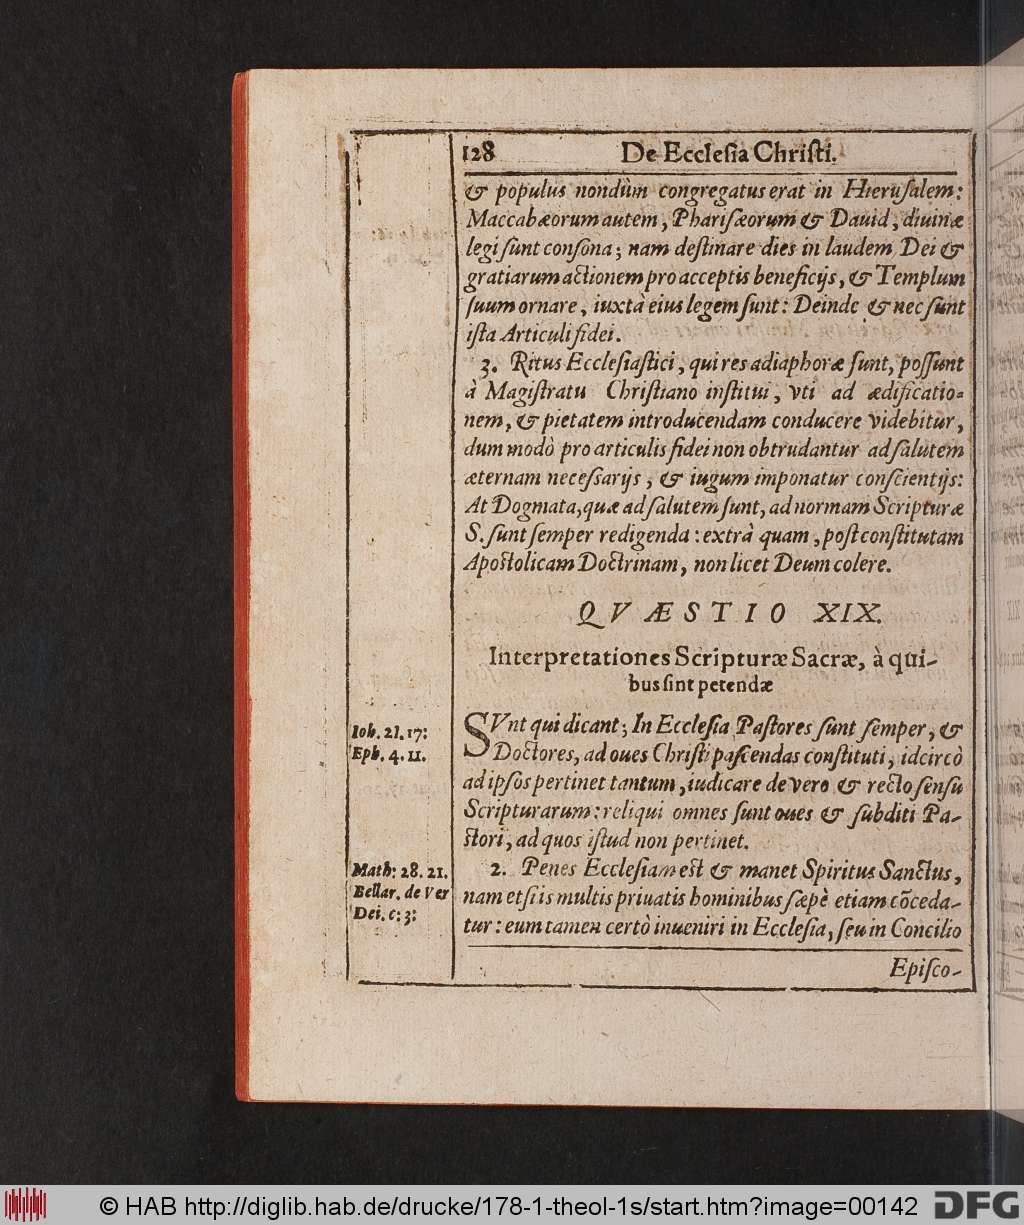 128 De Eccleſia Chriſti.
& populus nondùm congregatus erat in Hieruſalem:
Maccabæorum autem, Phariſæorum & Dauid, diuinæ
legi ſunt conſona; nam deſtinare dies in laudem Dei &
gratiarum actionem pro acceptis beneficijs, & Templum
ſuum ornare, iuxtà eius legem ſunt: Deinde & nec ſunt
iſta Articuli fidei.
3. Ritus Eccleſiaſtici, qui res adiaphoræ ſunt, poſſunt
à Magiſtratu Chriſtiano inſtitui, vti ad ædificatio-
nem, & pietatem introducendam conducere videbitur,
dum modò pro articulis fidei non obtrudantur ad ſalutem
æternam neceſſarijs, & iugum imponatur conſcientijs:
At Dogmata, quæ ad ſalutem ſunt, ad normam Scripturæ
S. ſunt ſemper redigenda: extrà quam, poſt conſtitutam
Apoſtolicam Doctrinam, non licet Deum colere.
QVÆSTIO XIX.
Interpretationes Scripturæ Sacræ, à qui-
bus ſint petendæ
SVnt qui dicant; In Eccleſia Paſtores ſunt ſemper, &
Ioh. 21. 17:
Doctores, ad oues Chriſti paſcendas conſtituti, idcircò
Eph. 4. 11.
ad ipſos pertinet tantum, iudicare de vero & recto ſenſu
Scripturarum: reliqui omnes ſunt oues & ſubditi Pa-
ſtori, ad quos iſtud non pertinet.
2. Penes Eccleſiam eſt & manet Spiritus Sanctus,
Math: 28. 21.
Bellar. de Ver
Dei. c: 3:
nam etſi is multis priuatis hominibus ſæpè etiam cõceda-
tur: eum tamen certò inueniri in Eccleſia, ſeu in Concilio
Epiſco-
© HAB http://diglib.hab.de/drucke/178-1-theol-1s/start.htm?image=00142
DFG